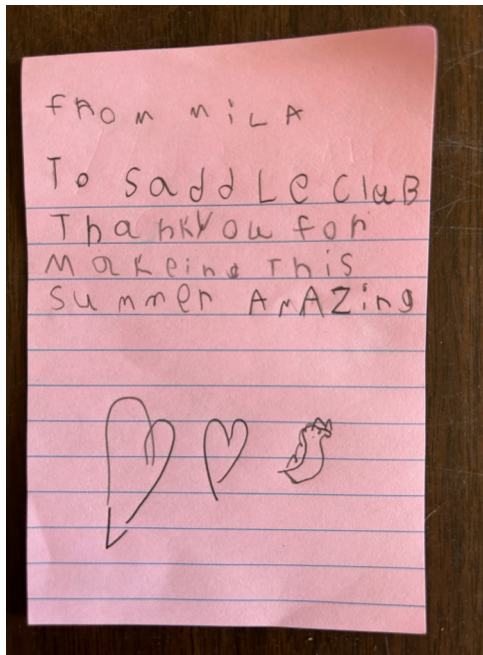 fROM MiLA
To SaddLe CluB
ThankYou foR
Makeing This
SummeR AMAZing